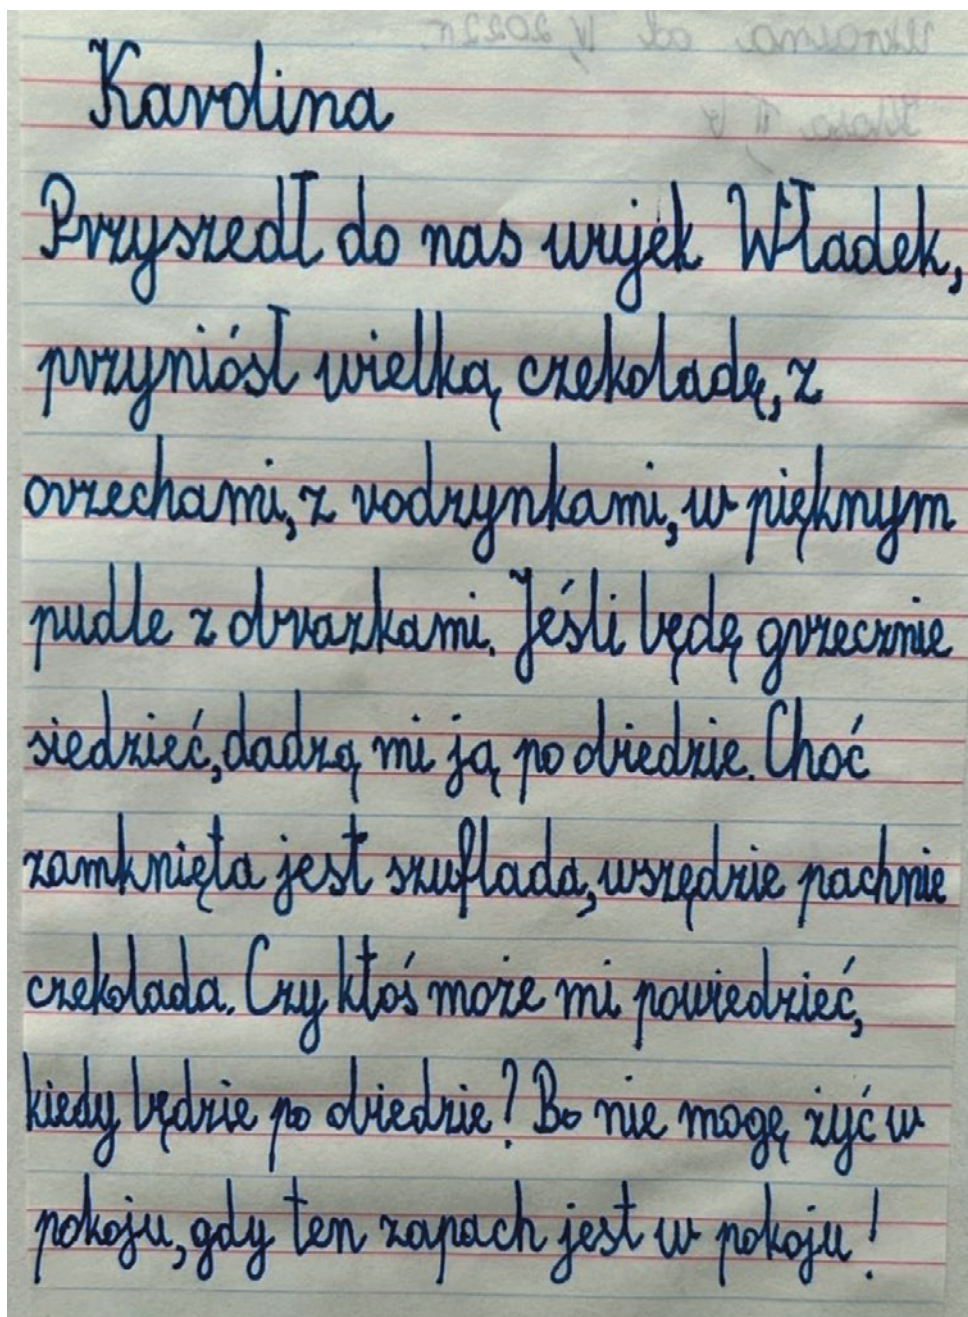 Ukraina od V 2022r.
Karolina
Klasa II b
Przyszedł do nas wujek Władek,
przyniósł wielką czekoladę, z
orzechami, z rodzynkami, w pięknym
pudle z obrazkami. Jeśli będę grzecznie
siedzieć, dadzą mi ją po obiedzie. Choć
zamknięta jest szuflada, wszędzie pachnie
czekolada. Czy ktoś może mi powiedzieć,
kiedy będzie po obiedzie? Bo nie mogę żyć w
pokoju, gdy ten zapach jest w pokoju!